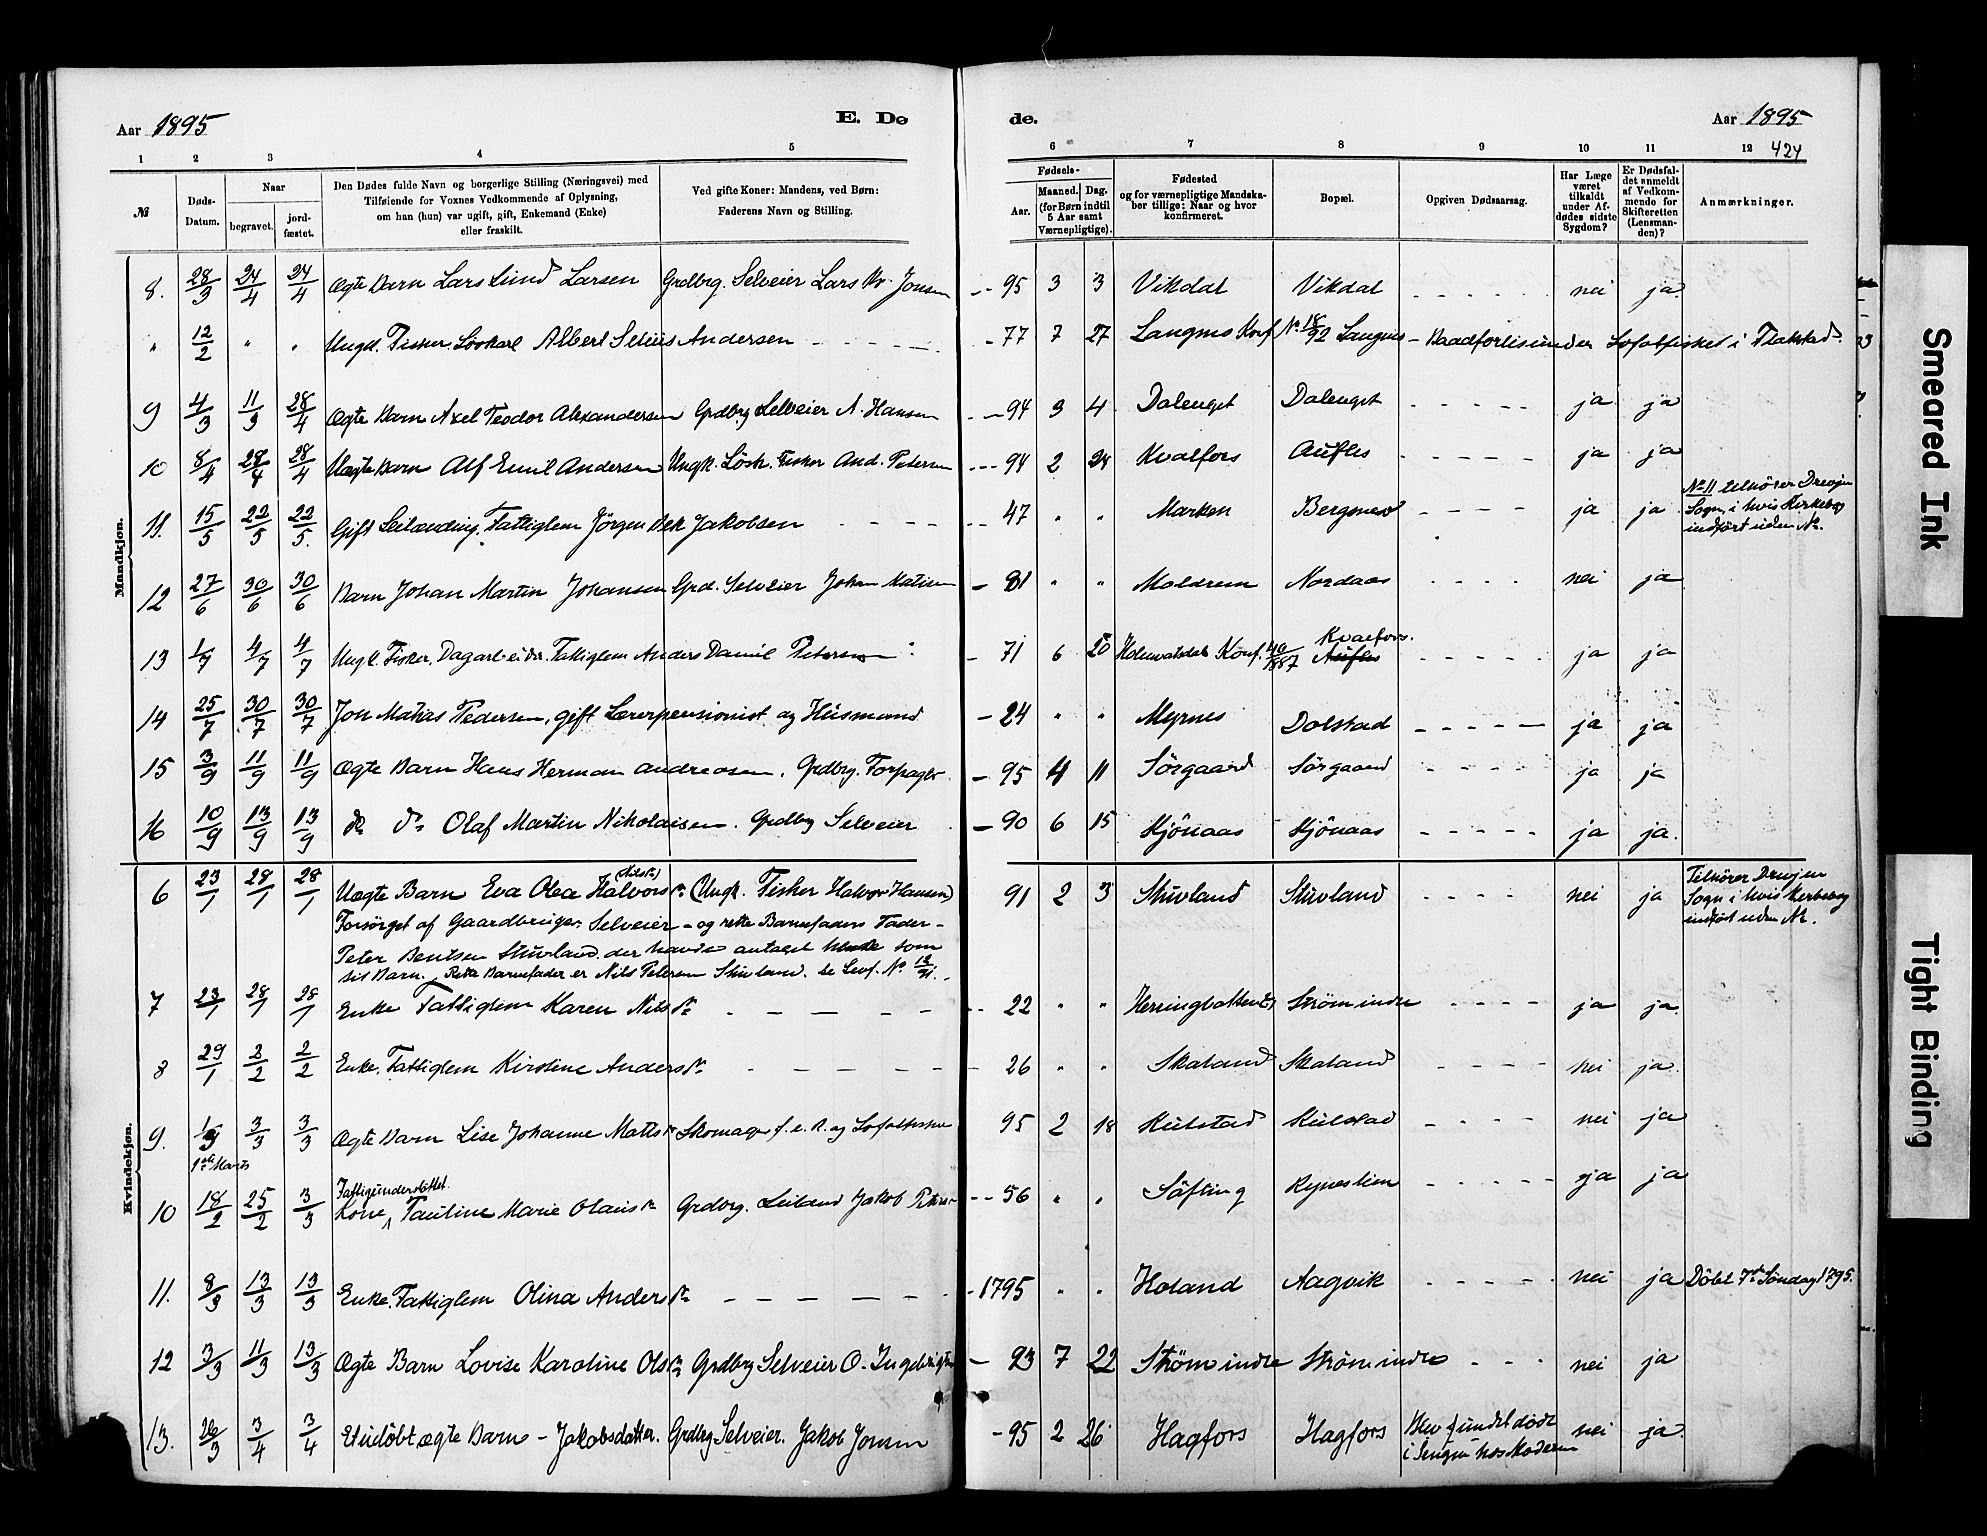 Aar 1895
E. Dø
de.
Aar 1895
1 2 3 4 5 6 7 8 9 10 11 12 424
№
Døds-Datum.
Naar
begravet.
jord-fæstet.
Den Dødes fulde Navn og borgerlige Stilling (Næringsvei) med
Tilføiende for Voxnes Vedkommende af Oplysning,
om han (hun) var ugift, gift, Enkemand (Enke)
eller fraskilt.
Ved gifte Koner: Mandens, ved Børn:
Faderens Navn og Stilling.
Fødsels-
Aar.
Maaned. Dag.
(for Børn indtil
5 Aar samt
Værnepligtige).
Fødested
og for værnepligtige Mandska-
ber tillige: Naar og hvor
konfirmeret.
Bopæl.
Opgiven Dødsaarsag.
Har Læge
været
tilkaldt
under Af-
dødes sidste
Sygdom?
Er Dødsfal-
det anmeldt
af Vedkom-
mende for
Skifteretten
(Lensman-
den)?
Anmærkninger.
Mandkjøn.
8. 28/3 24/4 24/4 Ægte Barn Lars Lund Larsen Grdbrg. Selveier Lars Kr. Jonsen -- 95 3 3 Vikdal Vikdal nei ja.
" 12/2 " " Ungk. Fisker Löskarl Albert Selius Andersen - 77 7 27 Langnes Konf. No 18/92 Langnes - Baadforlis under Lofotfisket i Flakstad.
9 4/3 11/3 28/4 Ægte Barn Axel Teodor Alexandersen Grdbrg Selveier A. Hansen -- 94 3 4 Dalenget Dalenget ja ja
10 8/4 28/4 28/4 Uægte Barn Alf Emil Andersen Ungk. Lösk. Fisker And. Petersen --- 94 2 24 Kvalfors Aufles ja ja
11. 15/5 22/5 22/5. Gift Leilænding, Fattiglem Jörgen Jakobsen -- 47 " " Marken Bergsnev ja ja
No 11 tilhører Drevjen
Sogn, i hvis Kirkebog
indført uden No.
12 27/6 30/6 30/6 Barn Johan Martin Johansen Grd. Selveier Johan Matisen - 81 " " Moldrem Nordaas nei ja
13 1/7 4/7 4/7 Ungk. Fisker, Dagarbeider. Fattiglem Anders Daniel Petersen - 71 6 20 Holmvatsdal Konf. Kvalfors. Aufles ja ja
14 25/7 30/7 30/7 Jon Matias Pedersen, gift Lærerpensionist og Husmand - 24 " " Myrnes Dolstad ja ja
15 3/9 11/9 11/9 Ægte Barn Hans Herman Andreasen. Grdbrg. Forpagter - 95 4 11 Sørgaard Sørgaard ja ja
16 10/9 13/9 13/9 do do Olaf Martin Nikolaisen. Grdbrg Selveier - 90 6 15 Kjönaas Kjönaas ja ja.
Kvindekjøn.
6 23/1 28/1 28/1 Uægte Barn Eva Olea Halvorsdr (Nilsdr) (Ungk. Fisker Halvor Hansen) 91 2 3 Stuvland Stuvland nei ja
Forsørget af Gaardbruger Selveier - og rette Barnefaders Fader -
Peter Bentsen Stuvland der havde antaget som
sit Barn. Rette Barnefader er Nils Petersen Stuvland. se Levf. No 12/91.
Tilhører Drevjen
Sogn i hvis Kirkebog
indført uden No.
7 23/1 28/1 28/1 Enke Fattiglem Karen Nilsdr -- 22 " " Herringbotten Strøm indre ja ja.
8 29/1 2/2 2/2 Enke, Fattiglem Kirstine Andersdr - 26 " " Skaland Skaland nei ja.
9. 1/3 3/3 3/3 Ægte Barn Lise Johanne Mattisdr Skomager f. e. R. og Lofotfisker 95 2 18 Kulstad Kulstad nei ja
1ste Marts
10 18/2 25/2 3/3 Fattigunderstöttet Kone, Pauline Marie Olausdr Grdbrg. Leilænd Jakob Peters -- 56 " " Söfting Ryneslien ja ja
11. 8/3 13/3 13/3 Enke, Fattiglem Olina Andersdr - 1795 " " Holand Aagvik nei ja Döbt 7de Søndag 1795.
12 3/3 11/3 13/3 Ægte Barn Lovise Karoline Olsdr Grdbrg Selveier O. Ingebrigtsen - 93 7 22 Strøm indre Strøm indre nei ja
13. 26/3 3/4 3/4 Et udöbt ægte Barn - Jakobsdatter. Grdbrg Selveier. Jakob Jonsen - 95 2 26 Hagfors Hagfors Blev fundet dødt i Sengen hos Moderen nei ja.
Smeared Ink
Tight Binding